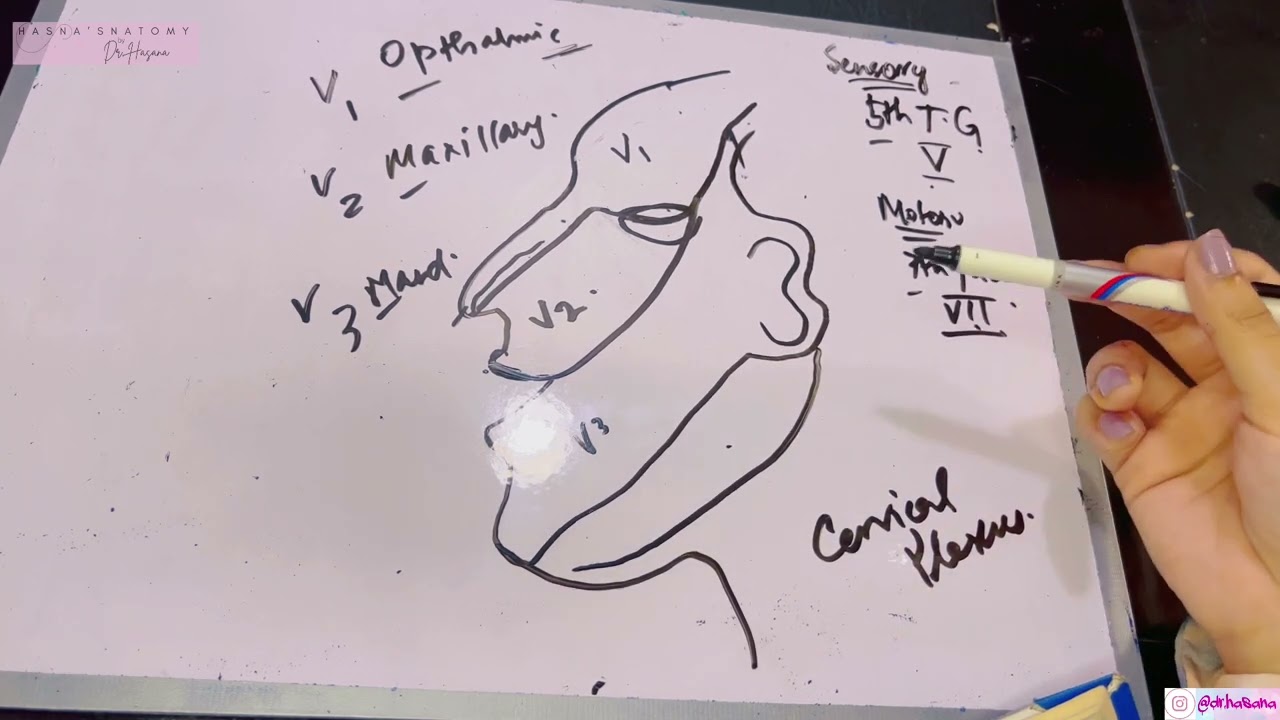 HASNA'SNATOMY
Dr.Hasana
V1 Opthalmic
V2 Maxillary.
V3 Mand.
V1
V2
V3
Sensory
5th T.G
V
Motory
VII
Cervical
Plexus.
@dr.hasana